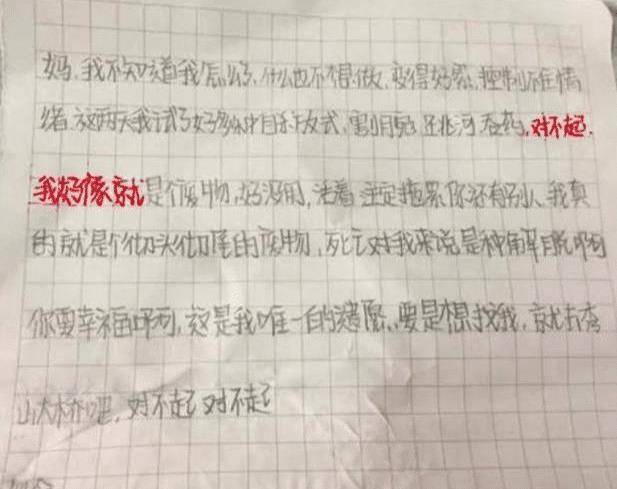 妈,我不知道我怎么了,什么也不想做,变得好累,控制不住情
绪,这两天我试了好多种自杀方式,割腕,跳河,吞药,对不起,
我好像就是个废物,好没用,活着注定拖累你还有别人,我真
的就是个彻头彻尾的废物,死亡对我来说是种解脱啊
你要幸福啊,这是我唯一的遗愿,要是想找我,就去
山大桥吧,对不起对不起